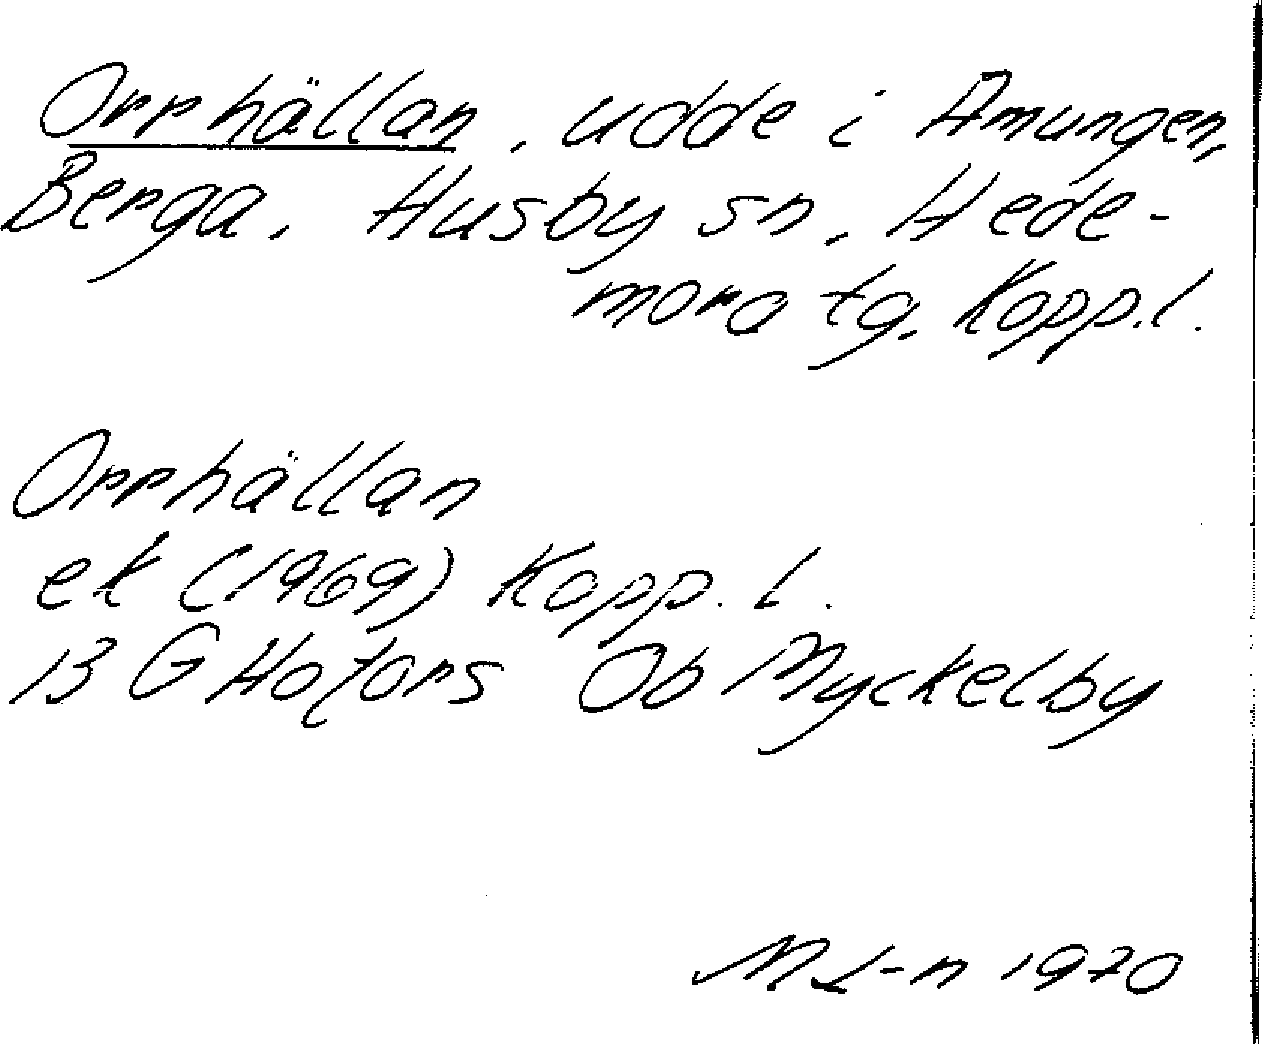 Orrhällan, udde i Amungen,
Berga, Husby sn, Hede-
mora tg, Kopp.l.
Orrhällan
ek (1969) Kopp. l.
13 G Hofors Ob Myckelby
M L-n 1970